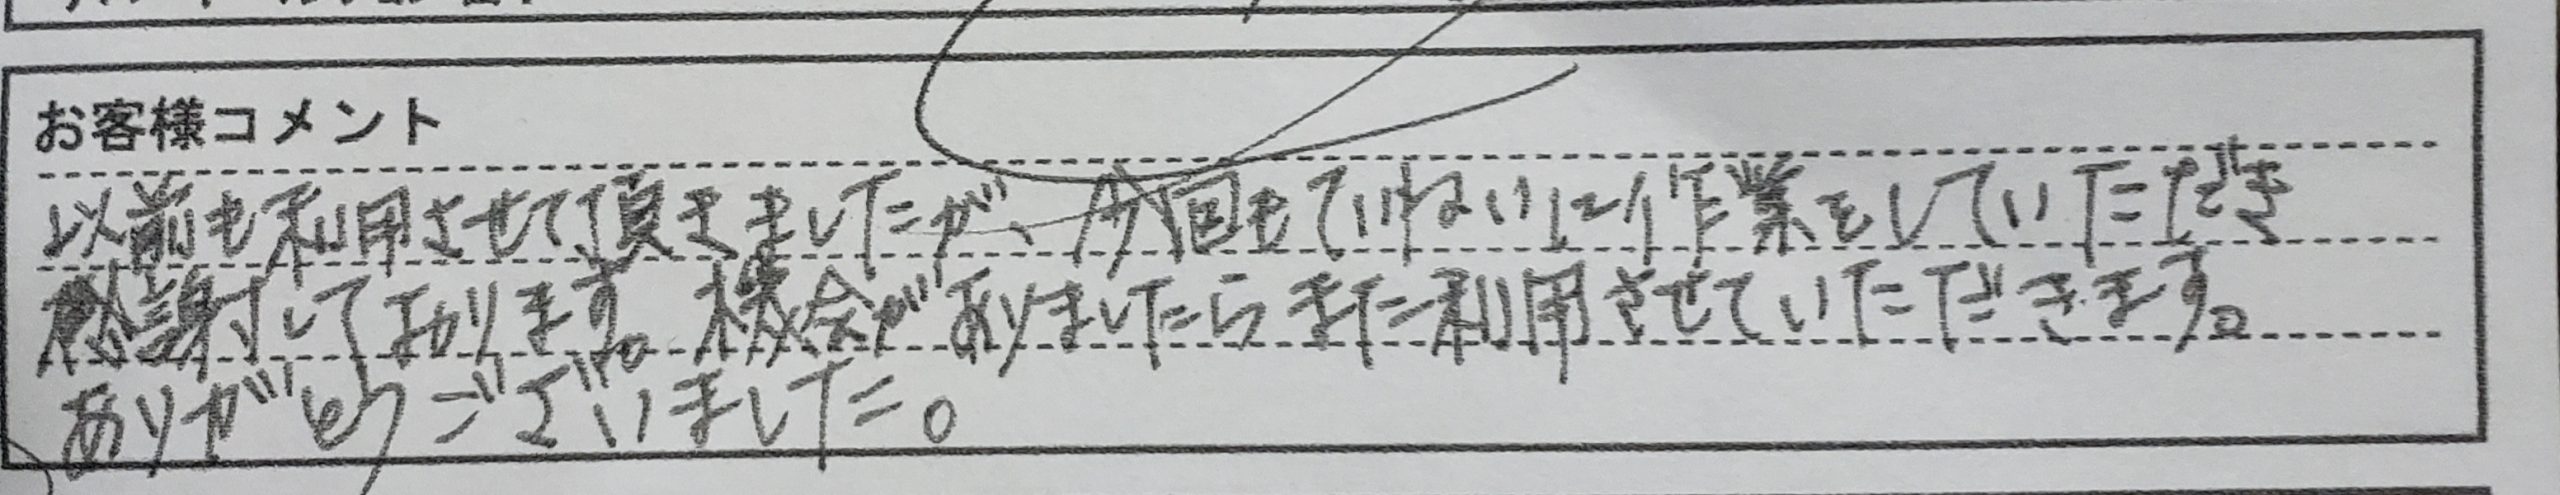 お客様コメント
以前も利用させて頂きましたが、今回もていねいに作業をしていただき
感謝しております。機会がありましたらまた利用させていただきます。
ありがとうございました。